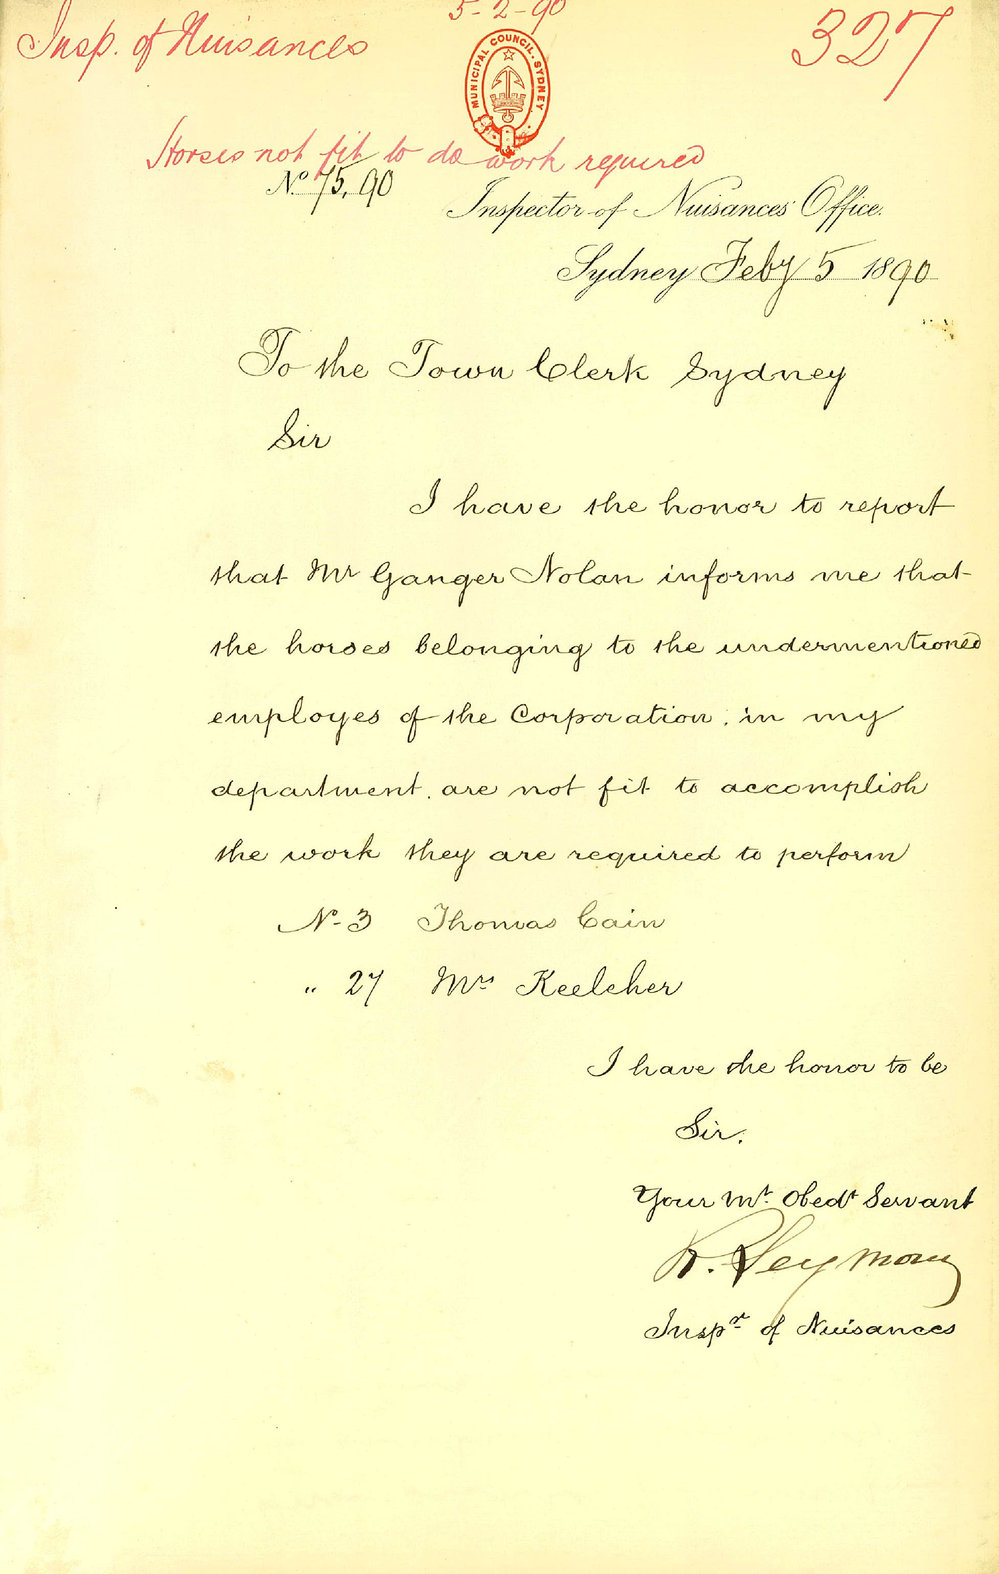 5-2-90
Insp. of Nuisances
327
MUNICIPAL COUNCIL. SYDNEY
Horses not fit to do work required
No 75. 90
Inspector of Nuisances' Office.
Sydney Feby 5 1890
To the Town Clerk Sydney
Sir
I have the honor to report
that Mr Ganger Nolan informs me that
the horses belonging to the undermentioned
employes of the Corporation, in my
department, are not fit to accomplish
the work they are required to perform
No. 3 Thomas Cain
" 27 Mrs Keeleher
I have the honor to be
Sir,
Your Mt. Obedt Servant
R. Seymour
Inspr of Nuisances